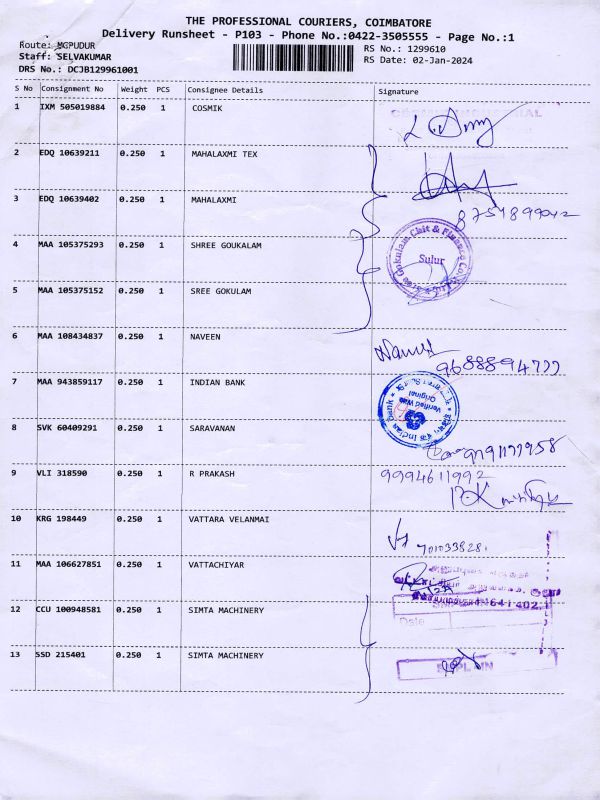 THE PROFESSIONAL COURIERS, COIMBATORE
Delivery Runsheet - P103 - Phone No.:0422-3505555 - Page No.:1
Route: MCPUDUR
RS No.: 1299610
Staff: SELVAKUMAR
RS Date: 02-Jan-2024
DRS No.: DCJB129961001
S No Consignment No Weight PCS Consignee Details Signature
1 IXM 505019884 0.250 1 COSMIK
2 EDQ 10639211 0.250 1 MAHALAXMI TEX
3 EDQ 10639402 0.250 1 MAHALAXMI
4 MAA 105375293 0.250 1 SHREE GOUKALAM
Gokulam Chit & Finance Co
Sulur
5 MAA 105375152 0.250 1 SREE GOKULAM
6 MAA 108434837 0.250 1 NAVEEN
7 MAA 943859117 0.250 1 INDIAN BANK
Indian Bank
Verified With
Original
8 SVK 60409291 0.250 1 SARAVANAN
9 VLI 318590 0.250 1 R PRAKASH
9994611992
10 KRG 198449 0.250 1 VATTARA VELANMAI
11 MAA 106627851 0.250 1 VATTACHIYAR
12 CCU 100948581 0.250 1 SIMTA MACHINERY
641402
Date
13 SSD 215401 0.250 1 SIMTA MACHINERY